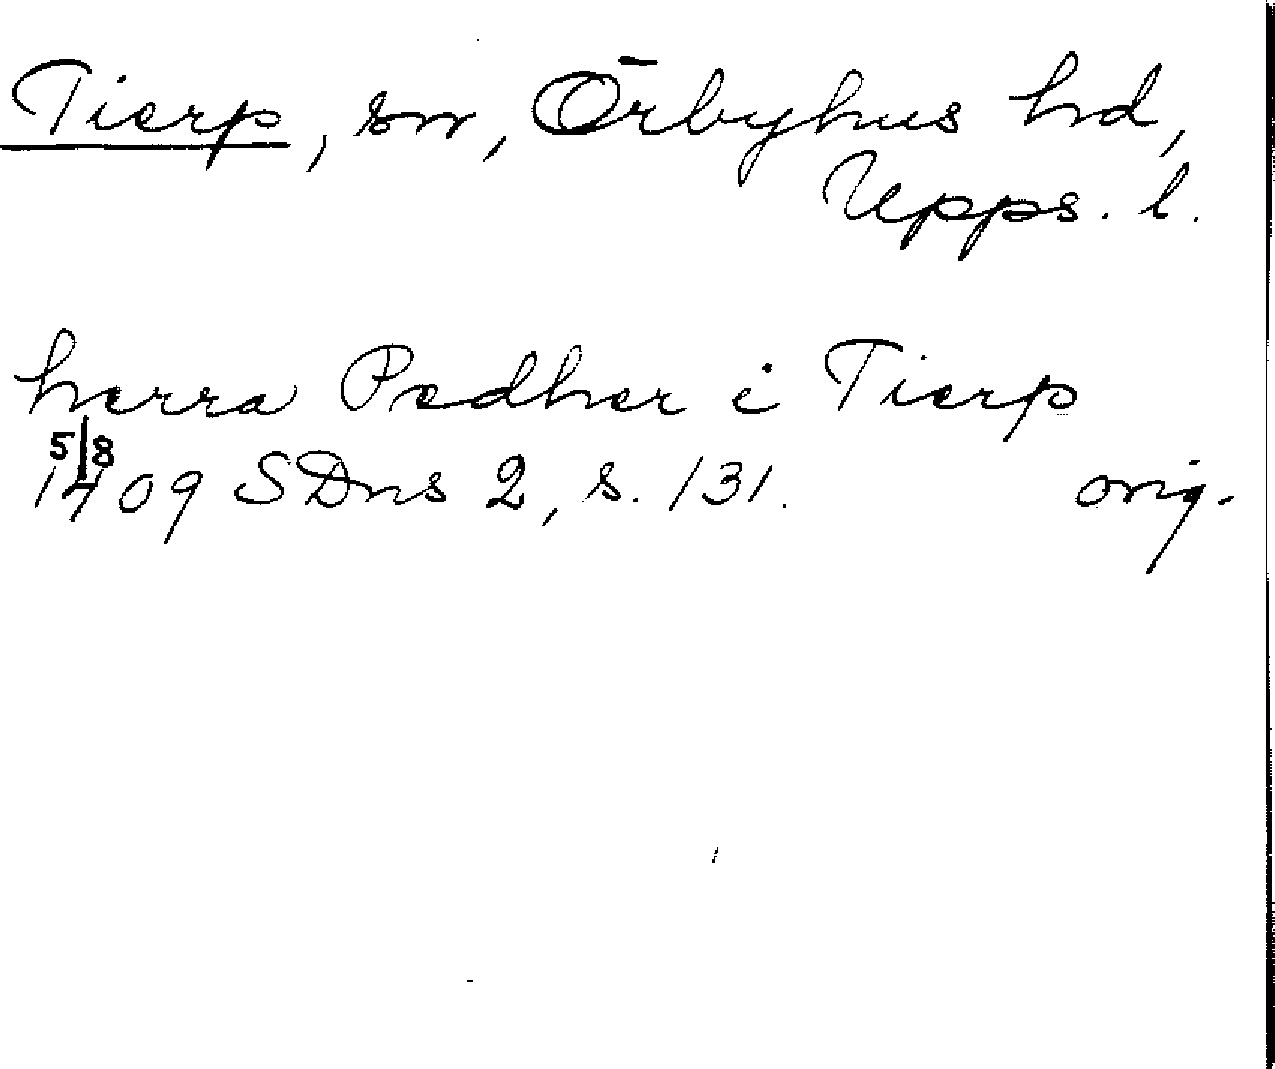 Tierp, sn, Örbyhus hd,
Upps. l.
herra Pedher i Tierp
5/8
1409 SDns 2, s. 131. orig.